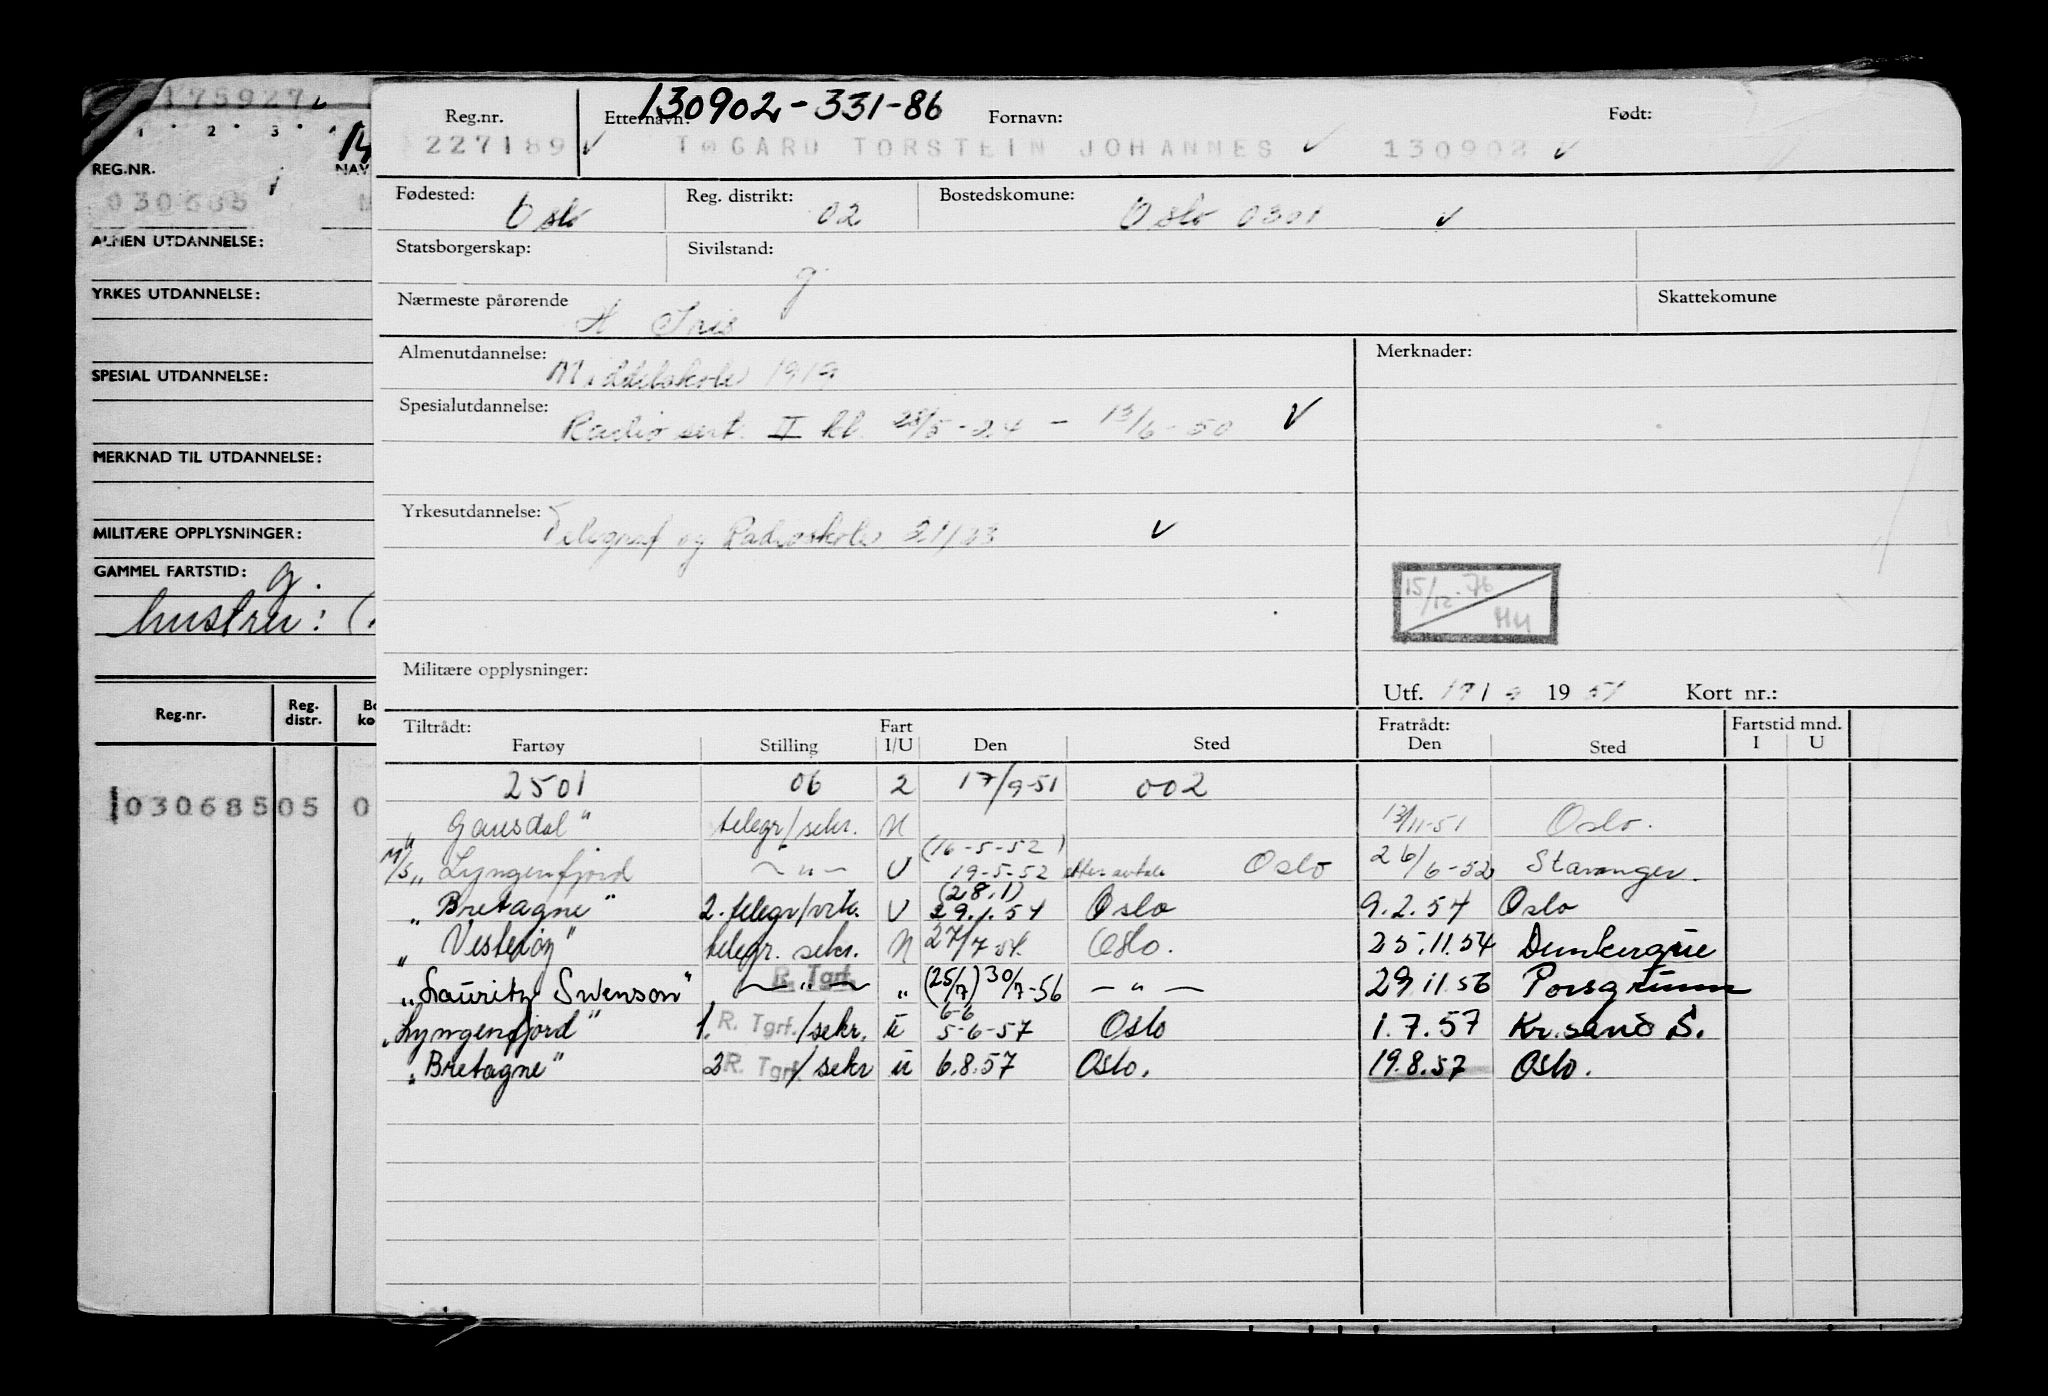 175927
1 · 2 · 3 ·
14
REG.NR.
NAV
030685
ALMEN UTDANNELSE:
YRKES UTDANNELSE:
SPESIAL UTDANNELSE:
MERKNAD TIL UTDANNELSE:
MILITÆRE OPPLYSNINGER:
GAMMEL FARTSTID: g.
hustru: (
Reg.nr. Reg. distr. Bo ko
03068505 0
130902-331-86
Reg.nr. Etternavn: Fornavn: Født:
227189 ✓ TØGARD TORSTEIN JOHANNES ✓ 130902 ✓
Fødested: Oslo Reg. distrikt: 02 Bostedskomune: Oslo 0301 ✓
Statsborgerskap: Sivilstand: g
Nærmeste pårørende Skattekomune
H
Almenutdannelse: Middelskole 1919 Merknader:
Spesialutdannelse: Radio sert. II kl. 28/5-24 - 13/6-50 ✓
Yrkesutdannelse: Telegraf og Radioskole 21/23 ✓
15/12-76
HM
Militære opplysninger:
Utf. 19 51 Kort nr.:
Tiltrådt: Fart Fratrådt: Fartstid mnd.
Fartøy Stilling I/U Den Sted Den Sted I U
2501 06 2 17/9-51 002
" Gausdal" telegr/sekr. N 13/11-51 Oslo.
(16-5-52)
M/S " Lyngenfjord — " — U 19-5-52 etter avtale Oslo 26/6-52 Stavanger.
(28.1)
" Bretagne" 2. telegr/ U 29.1.54 Oslo 9.2.54 Oslo
" Vesterøy" telegr. sekr. N 27/7-54 Oslo. 25.11.54 Dunkerque
R. Tgrf.
" Lauritz Swenson" — " — " (25/7) 30/7-56 — " — 29.11.56 Porsgrunn
6-6
" Lyngenfjord" 1. R. Tgrf./sekr. u 5-6-57 Oslo 1.7.57 Kr.sand S.
" Bretagne" 2 R. Tgrf./sekr u 6.8.57 Oslo. 19.8.57 Oslo.